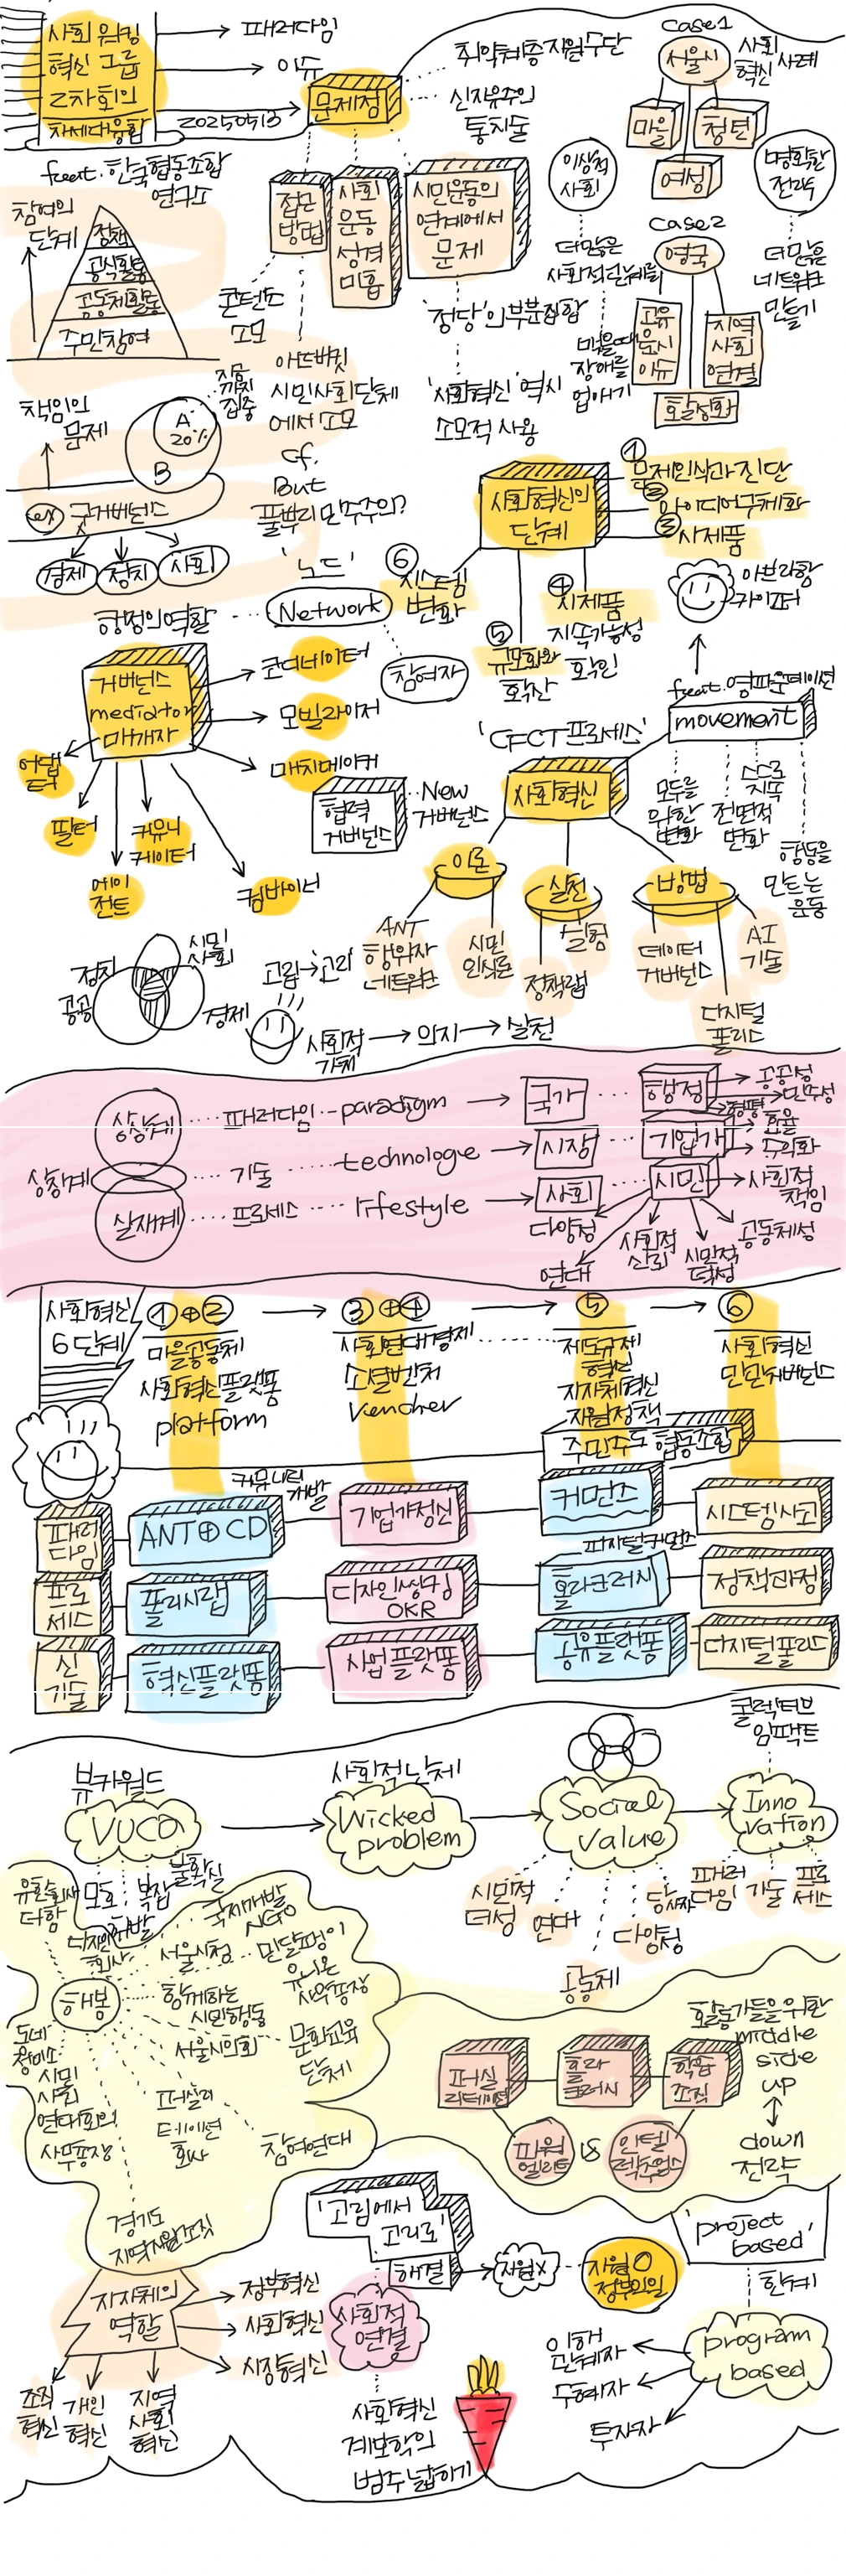 사회 워킹
혁신 그룹
2차 회의
차세대융합
패러다임
이슈
20250513
문제점
feat. 한국협동조합
연구소
취약계층 지원수단
신자유주의
통치술
접근
방법
콘텐츠
소모
사회
운동
성격
미흡
어드버킷
시민사회단체
에서 소모
cf.
But
풀뿌리 민주주의?
시민운동의
연계에서
문제
'정당'의 부분집합
'사회혁신' 역시
소모적 사용
case1
서울시
사회
혁신 사례
마을
청년
여성
이상적
사회
더많은
사회적 관계를
막을때
장애를
없애기
명확한
전략
더많은
네트워크
만들기
case2
영국
고유
문시
이슈
지역
사회
연결
활성화
참여의
단계
정책
공식활동
공동체활동
주민참여
책임의
문제
A
20%
B
지금
까지
집중
ex) 굿거버넌스
경제
정치
사회
행정의 역할
'노드'
Network
참여자
사회혁신의
단계
① 문제인식과 진단
② 아이디어구체화
③ 시제품
④
시제품
지속가능성
확인
⑤
규모화와
확산
⑥
시스템
변화
아브라함
카이퍼
feat. 영파운데이션
movement
모두를
위한
변화
전면적
변화
스스로
지속
행동을
만드는
운동
거버넌스
mediator
매개자
코디네이터
모빌라이저
매치메이커
어댑
터
필터
에이
전트
커뮤니
케이터
컴바이너
협력
거버넌스
New
거버넌스
'CFCT프로세스'
사회혁신
이론
실천
방법
ANT
행위자
네트워크
시민
인식론
정책랩
실험
데이터
거버넌스
디지털
폴리스
AI
기술
정치
시민
사회
공공
경제
고립→고리
사회적
가치
의지
실천
상상계
상징계
실재계
패러다임
paradigm
국가
행정
공공성
민주성
형평
기술
technologe
시장
기업가
효율
수익화
프로세스
lifestyle
사회
시민
사회적
책임
다양성
연대
사회적
신뢰
시민적
덕성
공동체성
사회혁신
6단계
①+②
마을공동체
사회혁신플랫폼
platform
③+④
사회연대경제
소셜벤처
vencher
⑤
제도규제
혁신
지자체혁신
지원정책
주민주도 협동조합
⑥
사회혁신
민관거버넌스
패러
다임
ANT⊕CD
커뮤니티
개발
기업가정신
커먼즈
시스템사고
프로
세스
폴리시랩
디자인씽킹
OKR
디지털커먼즈
홀라크러시
정책과정
신
기술
혁신플랫폼
사업플랫폼
공유플랫폼
디지털폴리스
뷰카월드
VUCA
모호
복잡
불확실
휘발
사회적난제
Wicked
problem
Social
value
시민적
덕성
연대
공동체
다양성
당사자
콜렉티브
임팩트
Inno
vation
패러
다임
기술
프로
세스
유한회사
더함
디자인
회사
국제개발
NGO
서울시청
민달팽이
유니온
사무국장
해봄
함께하는
시민행동
서울시의회
문화교육
단체
동네
정미소
시민
사회
연대회의
사무국장
퍼실리
테이션
회사
참여연대
경기도
지역지원조직
활동가들을 위한
middle
side
up
down
전략
퍼실
리테이션
홀라
크러시
학습
조직
파워
엘리트
VS
인텔
렉추얼스
'고립에서
고리로'
해결
지원X
지원O
정부의일
'project
based'
한계
program
based
이해
관계자
수혜자
투자자
지자체의
역할
정부혁신
사회혁신
시장혁신
조직
혁신
개인
혁신
지역
사회
혁신
사회적
연결
사회혁신
계보학의
범주넓히기